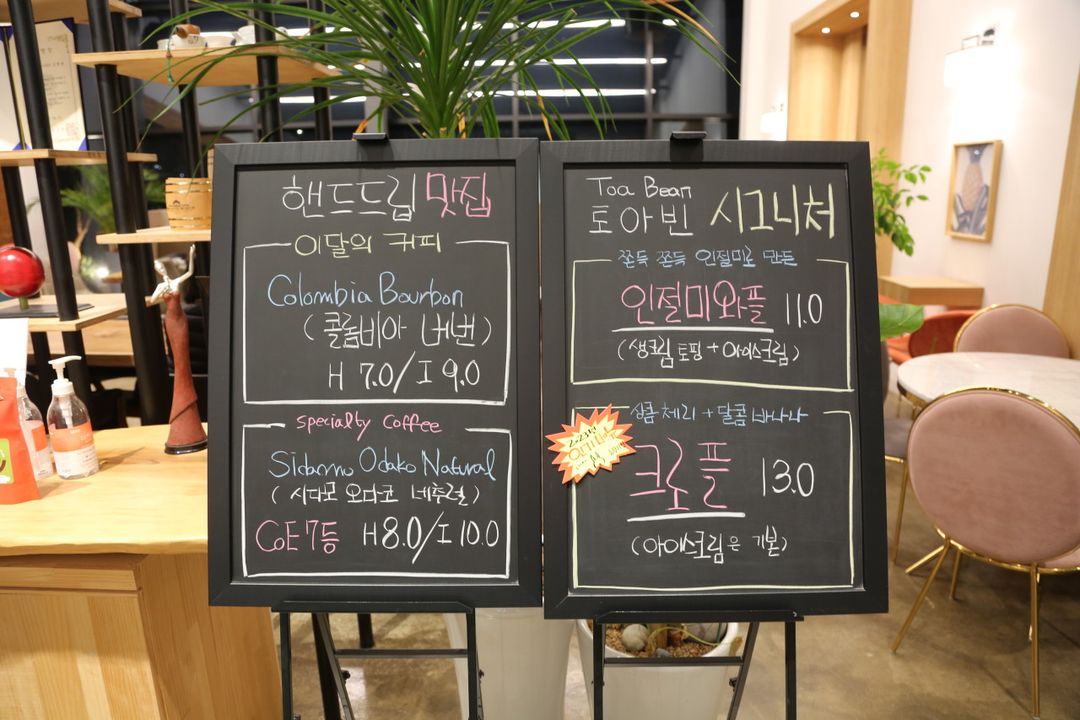 핸드드립 맛집
이달의 커피
Colombia Bourbon
(콜롬비아 버번)
H 7.0/I 9.0
specialty Coffee
Sidamo Odako Natural
(시다모 오다코 네추럴)
CoE 7등 H 8.0/I 10.0
Toa Bean
토아빈 시그니처
쫀득 쫀득 인절미로 만든
인절미와플 11.0
(생크림 토핑 + 아이스크림)
상콤 체리 + 달콤 바나나
크로플 13.0
(아이스크림은 기본)